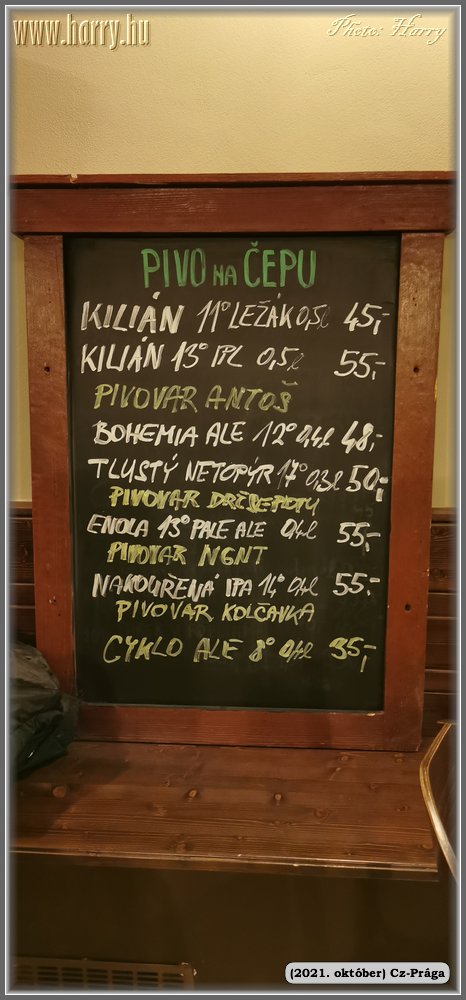 www.harry.hu
Photo: Harry
PIVO NA ČEPU
KILIÁN 11° LEŽÁK 0,5l 45,-
KILIÁN 13° IPL 0,5l 55,-
PIVOVAR ANTOŠ
BOHEMIA ALE 12° 0,4l 48,-
TLUSTÝ NETOPÝR 17° 0,3l 50,-
PIVOVAR
ENOLA 13° PALE ALE 0,4l 55,-
PIVOVAR
NAKOUŘENÁ IPA 14° 0,4l 55,-
PIVOVAR KOLČAVKA
CYKLO ALE 8° 0,4l 35,-
(2021. október) Cz-Prága